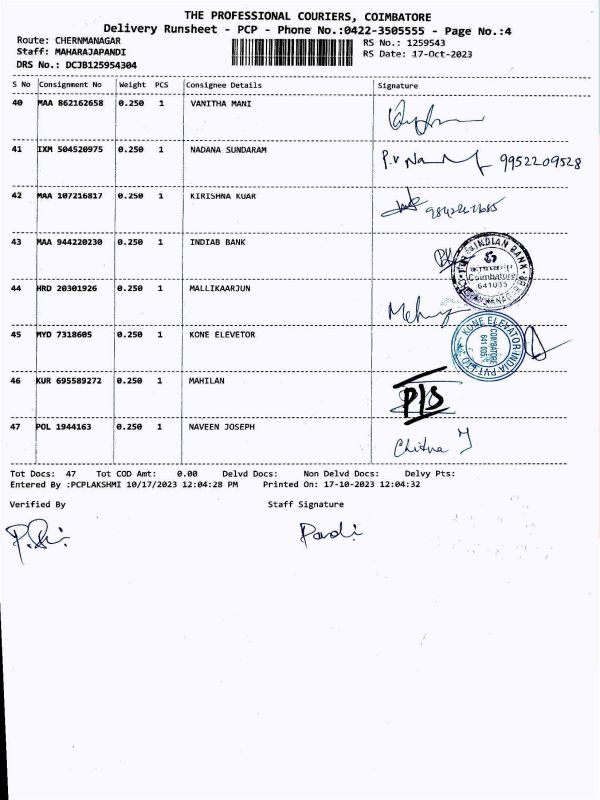 THE PROFESSIONAL COURIERS, COIMBATORE
Delivery Runsheet - PCP - Phone No.:0422-3505555 - Page No.:4
Route: CHERNMANAGAR RS No.: 1259543
Staff: MAHARAJAPANDI RS Date: 17-Oct-2023
DRS No.: DCJB125954304
S No Consignment No Weight PCS Consignee Details Signature
40 MAA 862162658 0.250 1 VANITHA MANI
41 IXM 504520975 0.250 1 NADANA SUNDARAM 9952209528
42 MAA 107216817 0.250 1 KIRISHNA KUAR
43 MAA 944220230 0.250 1 INDIAB BANK
INDIAN BANK
Coimbatore
641035
44 HRD 20301926 0.250 1 MALLIKAARJUN
45 MYD 7318605 0.250 1 KONE ELEVETOR
KONE ELEVATOR INDIA PVT LTD
COIMBATORE
641 035
46 KUR 695589272 0.250 1 MAHILAN P/S
47 POL 1944163 0.250 1 NAVEEN JOSEPH Chitra J
Tot Docs: 47 Tot COD Amt: 0.00 Delvd Docs: Non Delvd Docs: Delvy Pts:
Entered By :PCPLAKSHMI 10/17/2023 12:04:28 PM Printed On: 17-10-2023 12:04:32
Verified By Staff Signature
Pandi